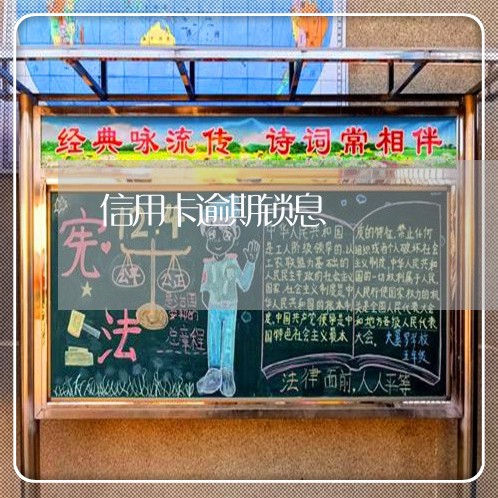 经典咏流传 诗词常相伴
信用卡逾期锁息
12.4
宪法
公平 公正
总章程
中华人民共和国
是工人阶级领导的，以
工农联盟为基础的
人民民主专政的社会主义
国家，社会主义制度是中
华人民共和国的根本制
度，中国共产党领导是中
国特色社会主义最本
质的特征。禁止任何
组织或者个人破坏社会
主义制度，中华人民共和
国的一切权利属于人民。
人民行使国家权力的机
关是全国人民代表大会
和地方各级人民代表
大会。
五年级
法律面前，人人平等